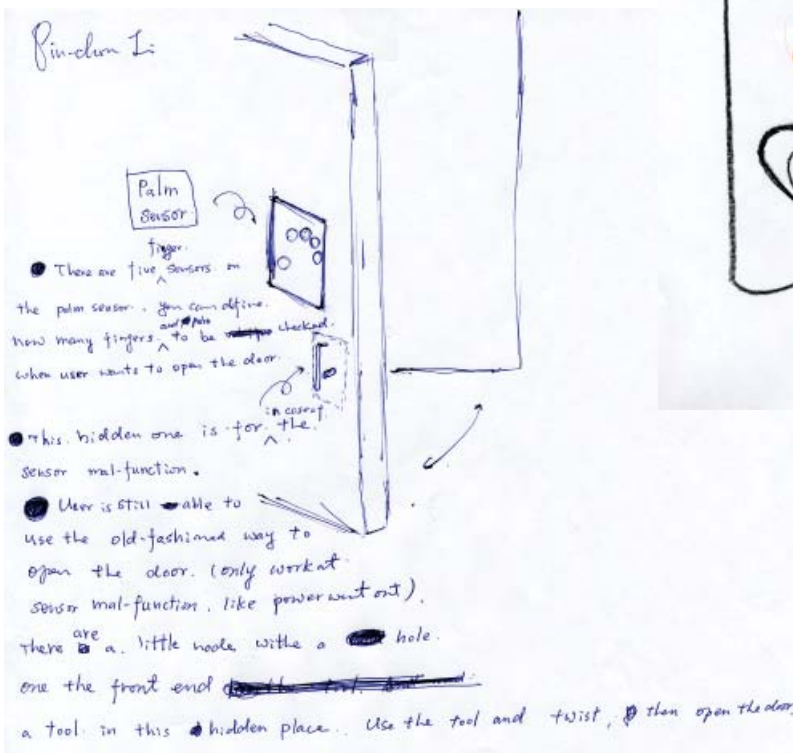 Pin-chun Li
Palm
sensor
finger
There are five sensors on
the palm sensor. you can dfine
how many fingers and palm to be checked.
when user wants to open the door.
This hidden one is for in case of the
sensor mal-function.
User is still able to
use the old-fashioned way to
open the door. (only work at
sensor mal-function, like power went out).
There are a little node withe a hole.
one the front end
a tool in this hidden place.. Use the tool and twist, then open the door.